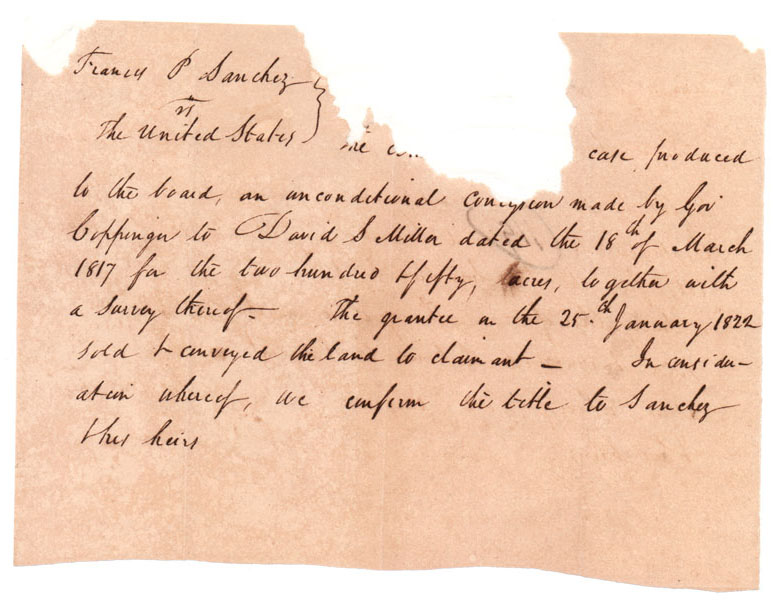 Francis P Sanchez
vs
The United States } case produced
to the board, an unconditional concession made by Gov
Coppinger to David S Miller dated the 18th of March
1817 for the two hundred & fifty, acres, together with
a survey thereof - The grantee on the 25th January 1822
sold & conveyed the land to claimant - In consider-
ation whereof, we confirm the title to Sanchez
& his heirs